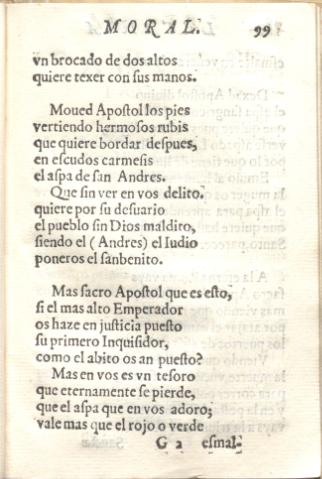 MORAL. 99
vn brocado de dos altos
quiere texer con sus manos.
Moued Apostol los pies
vertiendo hermosos rubis
que quiere bordar despues,
en escudos carmesis
el aspa de san Andres.
Que sin ver en vos delito.
quiere por su desuario
el pueblo sin Dios maldito,
siendo el (Andres) el Iudio
poneros el sanbenito.
Mas sacro Apostol que es esto,
si el mas alto Emperador
os haze en justicia puesto
su primero Inquisidor,
como el abito os an puesto?
Mas en vos es vn tesoro
que eternamente se pierde,
que el aspa que en vos adoro,
vale mas que el rojo o verde
G 2 esmal-